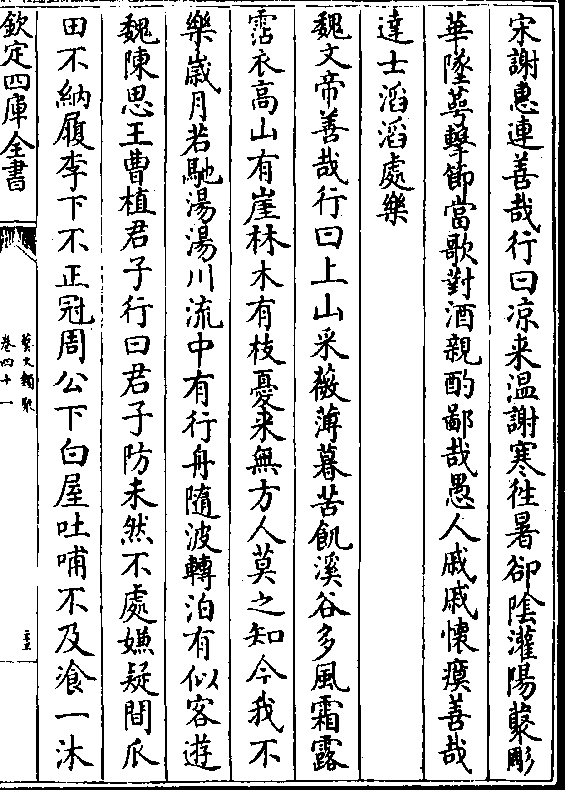 宋謝惠連善哉行曰凉来温謝寒徃暑卻隂灌陽藂彫
華墜萼擊節當歌對酒親酌鄙哉愚人戚戚懷瘼善哉
達士滔滔處樂
魏文帝善哉行曰上山采薇薄暮苦飢溪谷多風霜露
霑衣高山有崖林木有枝憂来無方人莫之知今我不
樂嵗月若馳湯湯川流中有行舟隨波轉泊有似客遊
魏陳思王曹植君子行曰君子防未然不處嫌疑間瓜
田不納履李下不正冠周公下白屋吐哺不及飡一沐
欽定四庫全書
藝文類聚
卷四十一